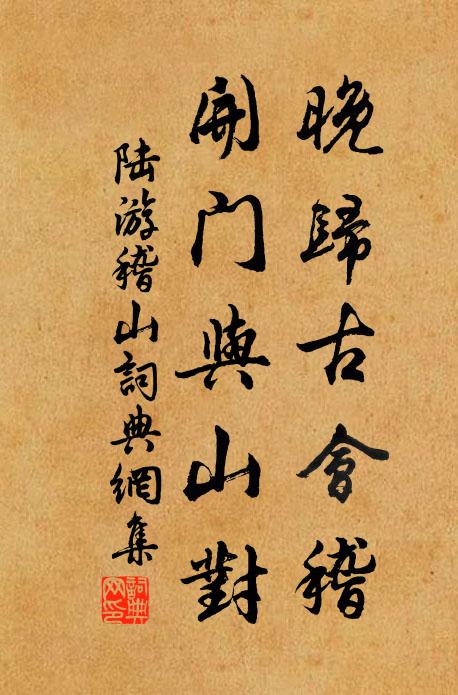 晚歸古會稽
開門與山對
陸游稽山詞典網集
詞典網印